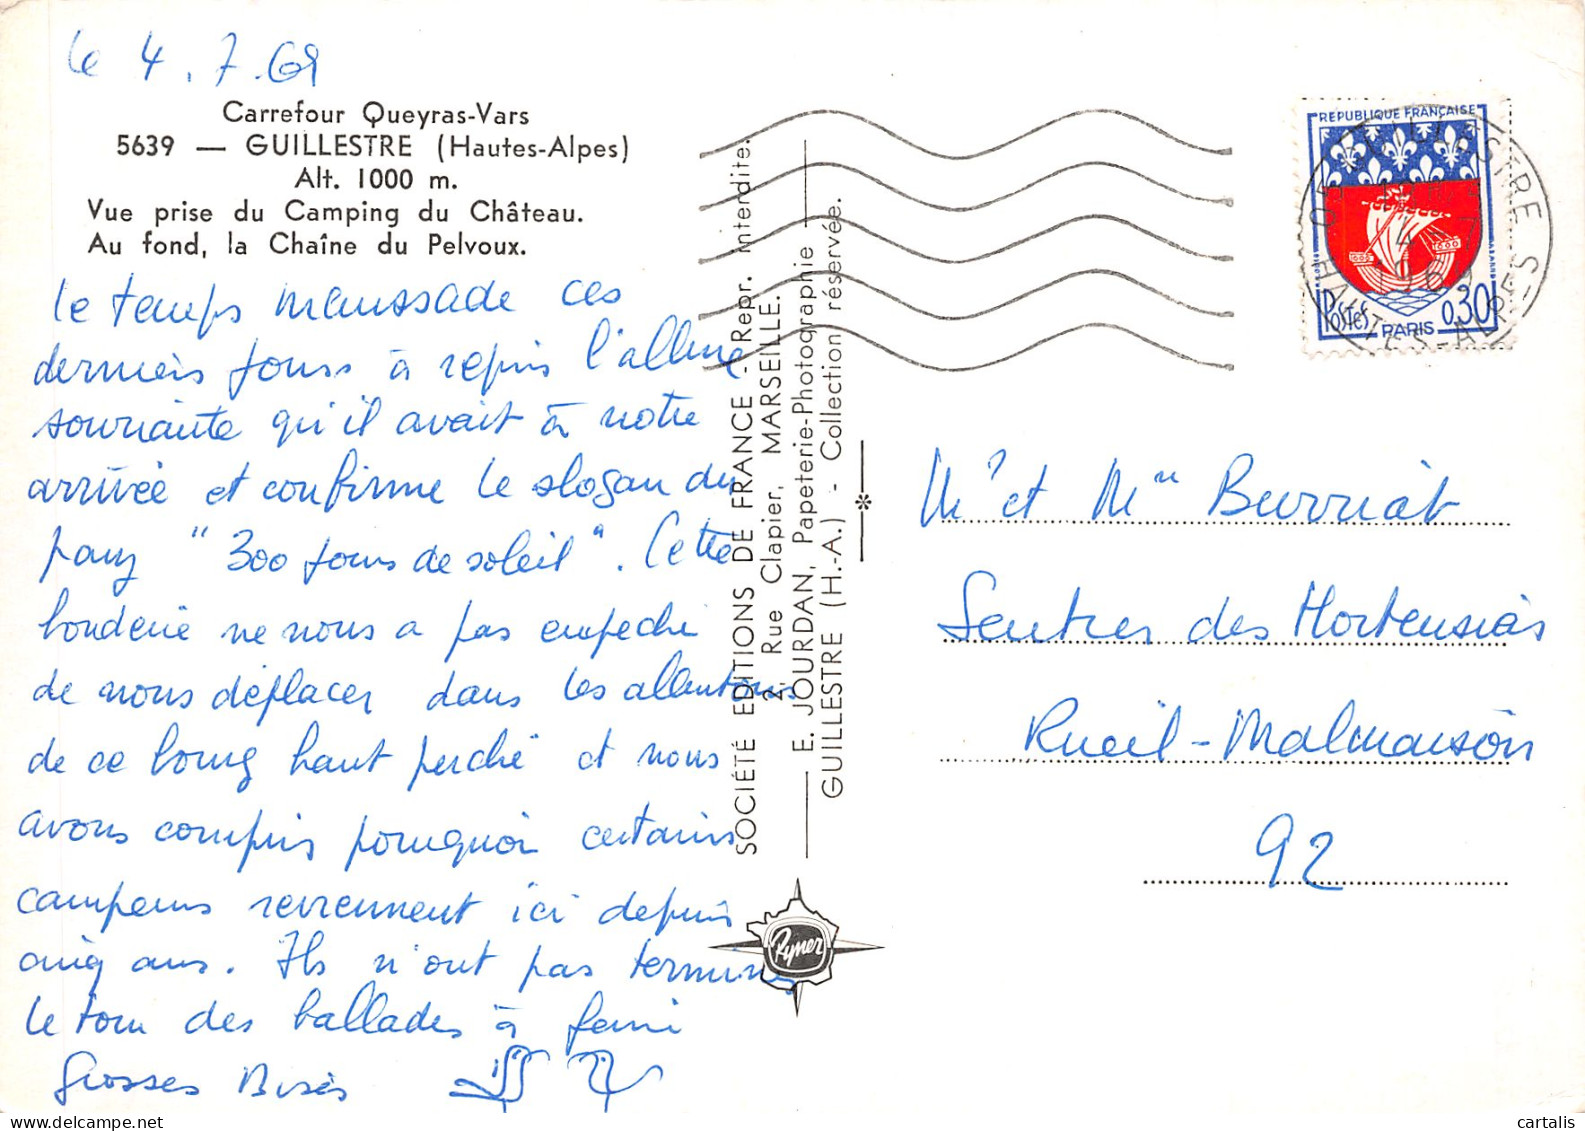 le 4.7.69
Carrefour Queyras-Vars
5639 — GUILLESTRE (Hautes-Alpes)
Alt. 1000 m.
Vue prise du Camping du Château.
Au fond, la Chaîne du Pelvoux.
Le temps maussade ces
derniers jours à repris l'allure
souriante qu'il avait à notre
arrivée et confirme le slogan du
pays "300 jours de soleil". Cette
bouderie ne nous a pas empeché
de nous déplacer dans les alentours
de ce bourg haut perché et nous
avons compris pourquoi certains
campeurs reviennent ici depuis
cinq ans. Ils n'ont pas terminé
le tour des ballades à faire
Grosses Bises
SOCIÉTÉ EDITIONS DE FRANCE - Repr. interdite.
2, Rue Clapier, MARSEILLE.
E. JOURDAN, Papeterie-Photographie
GUILLESTRE (H.-A.) - Collection réservée.
Rymer
REPUBLIQUE FRANÇAISE
Postes
PARIS
0,30
GUILLESTRE
4
HAUTES-ALPES
Mr et Mme Burruat
Sentier des Hortensias
Rueil-Malmaison
92
cartalis